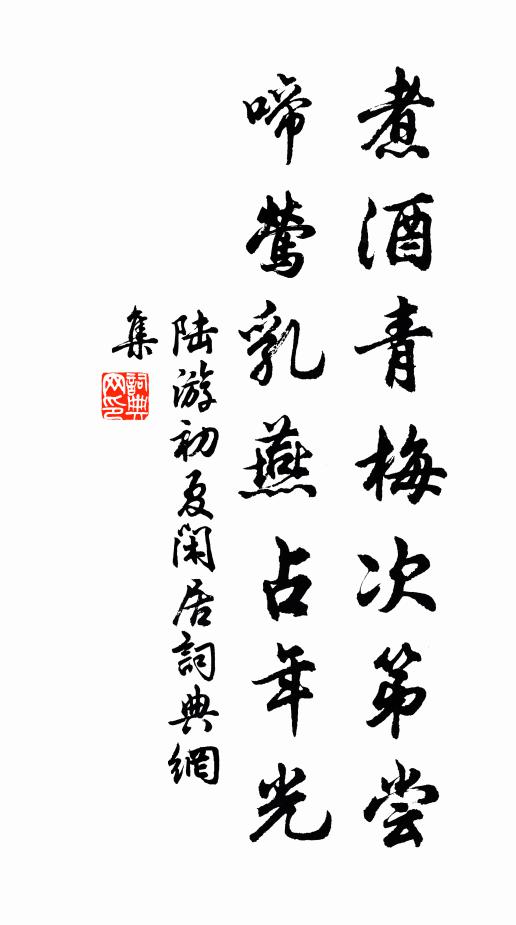 煮酒青梅次第尝
啼莺乳燕占年光
陆游初夏闲居詞典網
集
詞典
网印